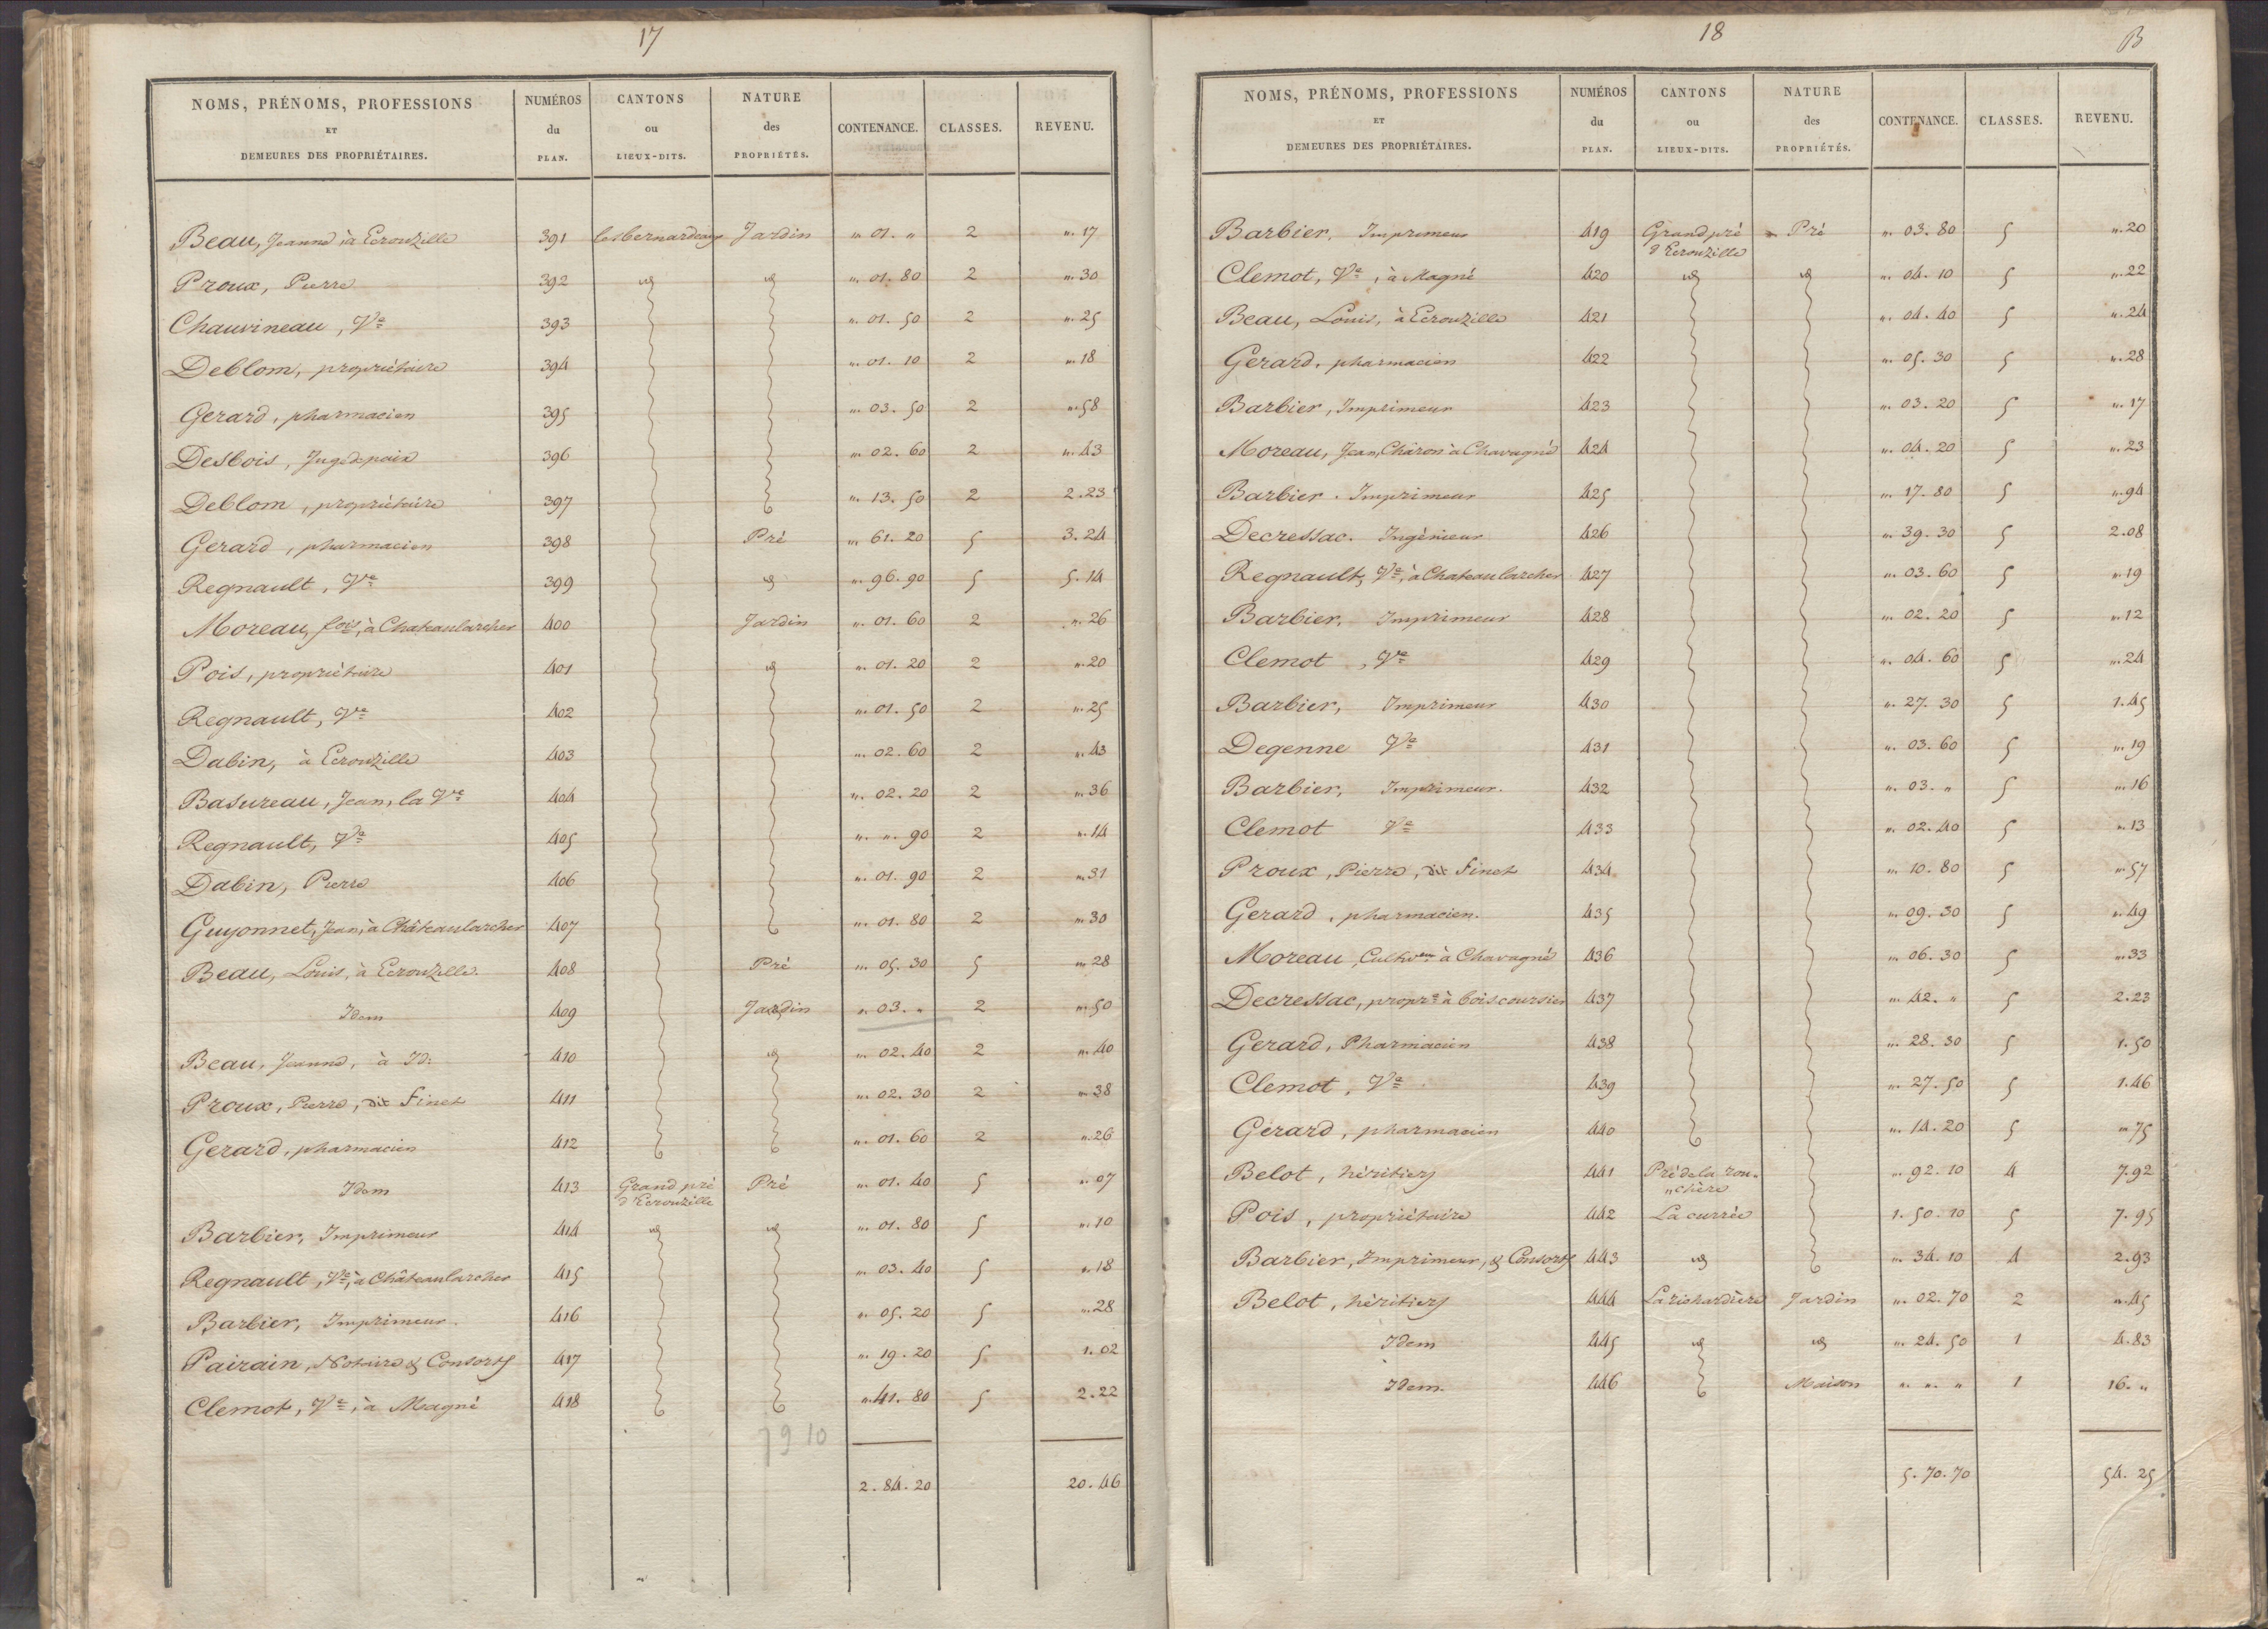 17
NOMS, PRÉNOMS, PROFESSIONS ET DEMEURES DES PROPRIÉTAIRES. NUMÉROS du PLAN. CANTONS ou LIEUX-DITS. NATURE des PROPRIÉTÉS. CONTENANCE. CLASSES. REVENU.
Beau, Jeanne, à Ecrouzille 391 les bernardeaux Jardin ". 01. " 2 ". 17
Proux, Pierre 392 id id ". 01. 80 2 ". 30
Chauvineau, Ve 393 ". 01. 50 2 ". 25
Deblom, propriétaire 394 ". 01. 10 2 ". 18
Gerard, pharmacien 395 ". 03. 50 2 ". 58
Desbois, Juge de paix 396 ". 02. 60 2 ". 43
Deblom, propriétaire 397 ". 13. 50 2 2. 23
Gerard, pharmacien 398 Pré ". 61. 20 5 3. 24
Regnault, Ve 399 id ". 96. 90 5 5. 14
Moreau, fois, à Chateaularcher 400 Jardin ". 01. 60 2 ". 26
Pois, propriétaire 401 id ". 01. 20 2 ". 20
Regnault, Ve 402 ". 01. 50 2 ". 25
Dabin, à Ecrouzille 403 ". 02. 60 2 ". 43
Basureau, Jean, la Ve 404 ". 02. 20 2 ". 36
Regnault, Ve 405 ". ". 90 2 ". 14
Dabin, Pierre 406 ". 01. 90 2 ". 31
Guyonnet, Jean, à Châteaularcher 407 ". 01. 80 2 ". 30
Beau, Louis, à Ecrouzille. 408 Pré ". 05. 30 5 ". 28
Idem 409 Jardin ". 03. " 2 ". 50
Beau, Jeanne, à Id. 410 id ". 02. 40 2 ". 40
Proux, Pierre, dit Finet 411 ". 02. 30 2 ". 38
Gerard, pharmacien 412 ". 01. 60 2 ". 26
Idem 413 Grand pré d'Ecrouzille Pré ". 01. 40 5 ". 07
Barbier, Imprimeur 414 id id ". 01. 80 5 ". 10
Regnault, Ve, à Châteaularcher 415 ". 03. 40 5 ". 18
Barbier, Imprimeur. 416 ". 05. 20 5 ". 28
Pairain, Notaire & Consorts 417 ". 19. 20 5 1. 02
Clemot, Ve, à Magné 418 ". 41. 80 5 2. 22
7910
2. 84. 20 20. 46
18
B
NOMS, PRÉNOMS, PROFESSIONS ET DEMEURES DES PROPRIÉTAIRES. NUMÉROS du PLAN. CANTONS ou LIEUX-DITS. NATURE des PROPRIÉTÉS. CONTENANCE. CLASSES. REVENU.
Barbier, Imprimeur 419 Grand pré d'Ecrouzille Pré ". 03. 80 5 ". 20
Clemot, Ve, à Magné 420 id id ". 04. 10 5 ". 22
Beau, Louis, à Ecrouzille 421 ". 04. 40 5 ". 24
Gerard, pharmacien 422 ". 05. 30 5 ". 28
Barbier, Imprimeur 423 ". 03. 20 5 ". 17
Moreau, Jean, Châron à Chavagné 424 ". 04. 20 5 ". 23
Barbier. Imprimeur 425 ". 17. 80 5 ". 94
Decressac. Ingénieur 426 ". 39. 30 5 2. 08
Regnault, Ve, à Chateaularcher 427 ". 03. 60 5 ". 19
Barbier, Imprimeur 428 ". 02. 20 5 ". 12
Clemot, Ve 429 ". 04. 60 5 ". 24
Barbier, Imprimeur 430 ". 27. 30 5 1. 45
Degenne Ve 431 ". 03. 60 5 ". 19
Barbier, Imprimeur. 432 ". 03. " 5 ". 16
Clemot Ve 433 ". 02. 40 5 ". 13
Proux, Pierre, dit Finet 434 ". 10. 80 5 ". 57
Gerard, pharmacien. 435 ". 09. 30 5 ". 49
Moreau, Cultiveur à Chavagné 436 ". 06. 30 5 ". 33
Decressac, propre à boiscoursier 437 ". 42. " 5 2. 23
Gerard, Pharmacien 438 ". 28. 30 5 1. 50
Clemot, Ve 439 ". 27. 50 5 1. 46
Gerard, pharmacien 440 ". 14. 20 5 ". 75
Belot, héritiers 441 Pré de la ron- chère ". 92. 10 4 7. 92
Pois, propriétaire 442 La currée 1. 50. 10 5 7. 95
Barbier, Imprimeur, & Consorts 443 id ". 34. 10 4 2. 93
Belot, héritiers 444 La richardière Jardin ". 02. 70 2 ". 45
Idem 445 id id ". 24. 50 1 4. 83
Idem. 446 Maison ". ". " 1 16. "
5. 70. 70 54. 25